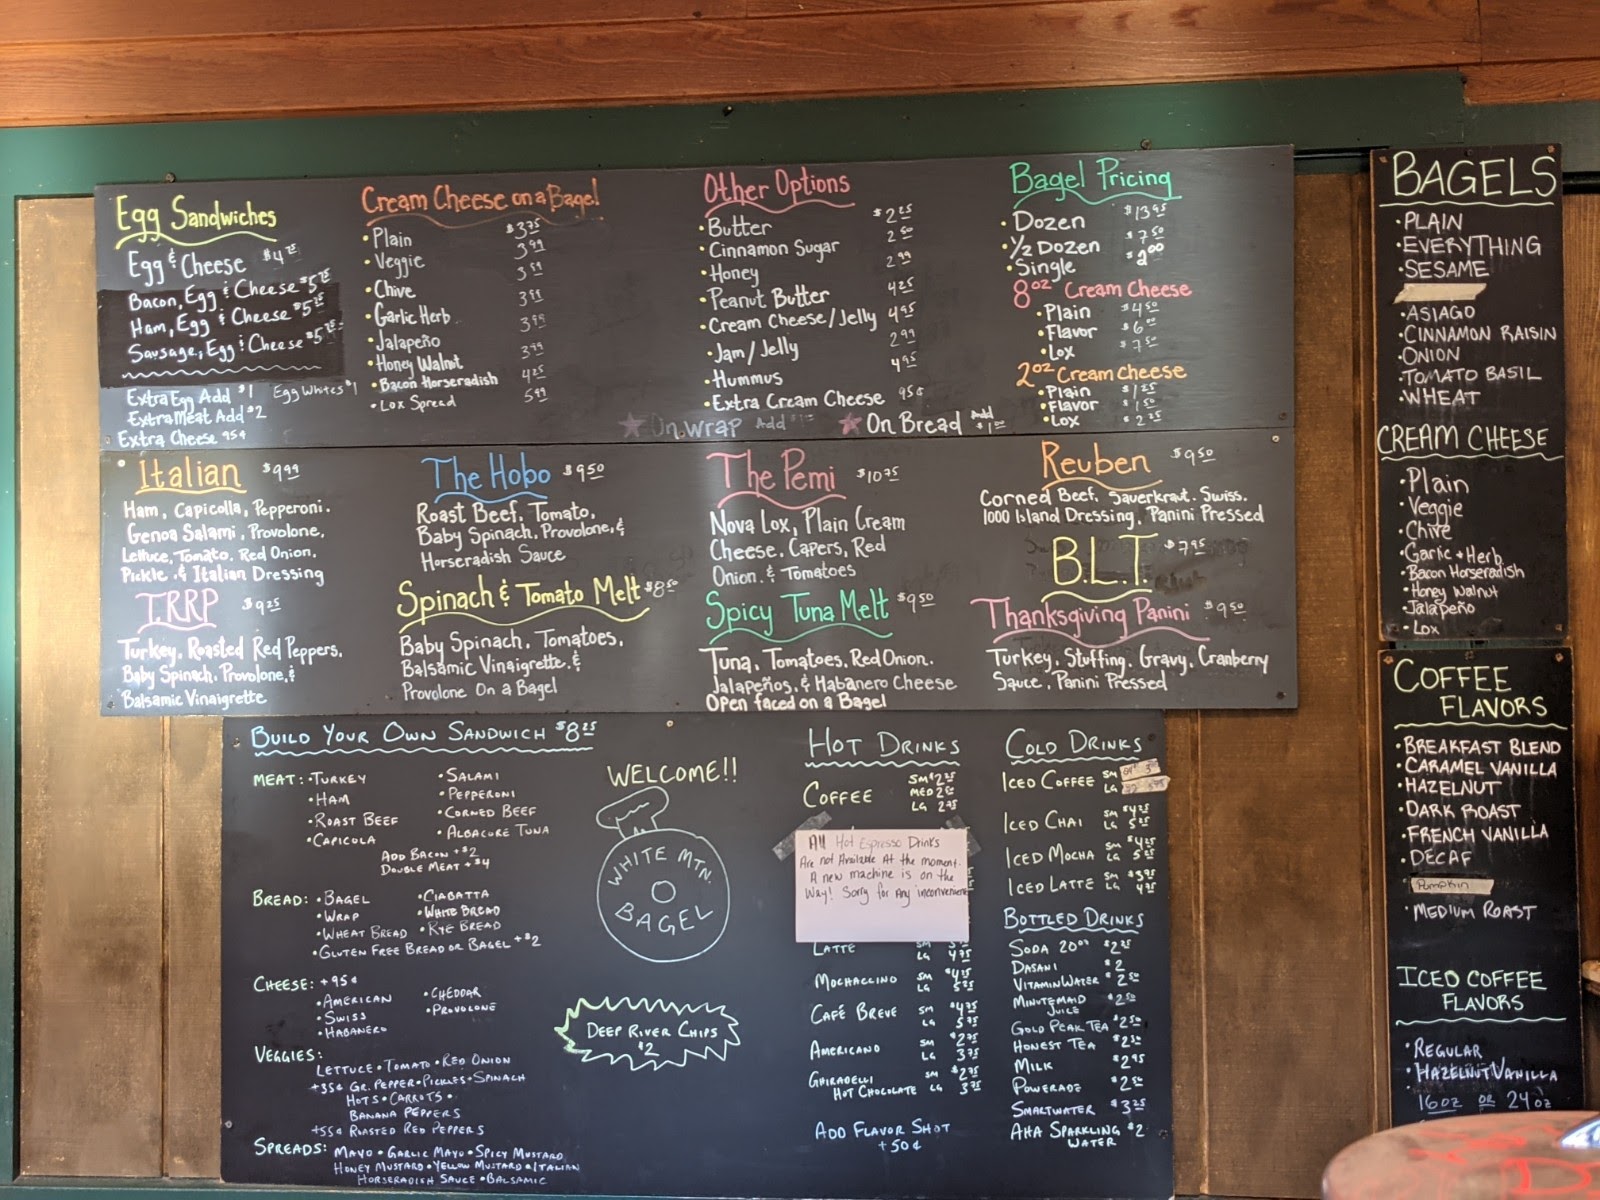 Egg Sandwiches
Egg & Cheese $4.25
Bacon, Egg & Cheese $5.25
Ham, Egg & Cheese $5.25
Sausage, Egg & Cheese $5.25
Extra Egg Add $1 Egg Whites $1
Extra Meat Add $2
Extra Cheese 95¢
Cream Cheese on a Bagel
• Plain $3.75
• Veggie 3.99
• Chive 3.99
• Garlic Herb 3.99
• Jalapeño 3.99
• Honey Walnut 3.99
• Bacon Horseradish 4.25
• Lox Spread 5.99
Other Options
• Butter $2.25
• Cinnamon Sugar 2.50
• Honey 2.99
• Peanut Butter 4.25
• Cream Cheese/Jelly 4.95
• Jam/Jelly 2.99
• Hummus 4.95
• Extra Cream Cheese 95¢
On Wrap Add
On Bread Add $1.00
Bagel Pricing
• Dozen $13.95
• 1/2 Dozen $7.50
• Single $2.00
8oz Cream Cheese
• Plain $4.50
• Flavor $6.00
• Lox $7.50
2oz Cream Cheese
• Plain $1.25
• Flavor $1.50
• Lox $2.25
Italian $9.99
Ham, Capicolla, Pepperoni,
Genoa Salami, Provolone,
Lettuce, Tomato, Red Onion,
Pickle & Italian Dressing
T.R.R.P $9.25
Turkey, Roasted Red Peppers,
Baby Spinach, Provolone, &
Balsamic Vinaigrette
The Hobo $9.50
Roast Beef, Tomato,
Baby Spinach, Provolone, &
Horseradish Sauce
Spinach & Tomato Melt $8.50
Baby Spinach, Tomatoes,
Balsamic Vinaigrette, &
Provolone On a Bagel
The Pemi $10.75
Nova Lox, Plain Cream
Cheese, Capers, Red
Onion, & Tomatoes
Spicy Tuna Melt $9.50
Tuna, Tomatoes, Red Onion,
Jalapeños, & Habanero Cheese
Open faced on a Bagel
Reuben $9.50
Corned Beef, Sauerkraut, Swiss,
1000 Island Dressing, Panini Pressed
B.L.T. $7.95
Thanksgiving Panini $9.50
Turkey, Stuffing, Gravy, Cranberry
Sauce, Panini Pressed
BUILD YOUR OWN SANDWICH $8.25
MEAT: • TURKEY
• HAM
• ROAST BEEF
• CAPICOLA
• SALAMI
• PEPPERONI
• CORNED BEEF
• ALBACORE TUNA
ADD BACON + $2
DOUBLE MEAT + $4
BREAD: • BAGEL
• WRAP
• WHEAT BREAD
• CIABATTA
• WHITE BREAD
• RYE BREAD
• GLUTEN FREE BREAD OR BAGEL + $2
CHEESE: +95¢
• AMERICAN
• SWISS
• HABANERO
• CHEDDAR
• PROVOLONE
VEGGIES:
LETTUCE • TOMATO • RED ONION
+35¢ GR. PEPPER • PICKLES • SPINACH
HOTS • CARROTS •
BANANA PEPPERS
+55¢ ROASTED RED PEPPERS
SPREADS: MAYO • GARLIC MAYO • SPICY MUSTARD
HONEY MUSTARD • YELLOW MUSTARD • ITALIAN
HORSERADISH SAUCE • BALSAMIC
WELCOME!!
WHITE MTN.
BAGEL
DEEP RIVER CHIPS
$2
HOT DRINKS
COFFEE SM $2.25
MED 2.50
LG 2.75
All Hot Espresso Drinks
Are not Available At the moment.
A new machine is on the
Way! Sorry for Any inconvenience
LATTE SM
LG 4.75
MOCHACCINO SM $4.25
LG 5.25
CAFÉ BREVE SM $4.75
LG 5.75
AMERICANO SM $2.75
LG 3.75
GHIRADELLI SM $2.75
HOT CHOCOLATE LG 3.75
ADD FLAVOR SHOT
+50¢
COLD DRINKS
ICED COFFEE SM
LG
ICED CHAI SM $4.25
LG 5.25
ICED MOCHA SM $4.25
LG 5.25
ICED LATTE SM $3.95
LG 4.95
BOTTLED DRINKS
SODA 20oz $2.25
DASANI $2
VITAMINWATER $2.50
MINUTEMAID $2.50
JUICE
GOLD PEAK TEA $2.50
HONEST TEA $2.50
MILK $2.95
POWERADE $2.50
SMARTWATER $3.25
AHA SPARKLING $2
WATER
BAGELS
• PLAIN
• EVERYTHING
• SESAME
• ASIAGO
• CINNAMON RAISIN
• ONION
• TOMATO BASIL
• WHEAT
CREAM CHEESE
• Plain
• Veggie
• Chive
• Garlic + Herb
• Bacon Horseradish
• Honey Walnut
• Jalapeño
• Lox
COFFEE
FLAVORS
• BREAKFAST BLEND
• CARAMEL VANILLA
• HAZELNUT
• DARK ROAST
• FRENCH VANILLA
• DECAF
Pumpkin
• MEDIUM ROAST
ICED COFFEE
FLAVORS
• REGULAR
• HAZELNUT VANILLA
16oz OR 24oz